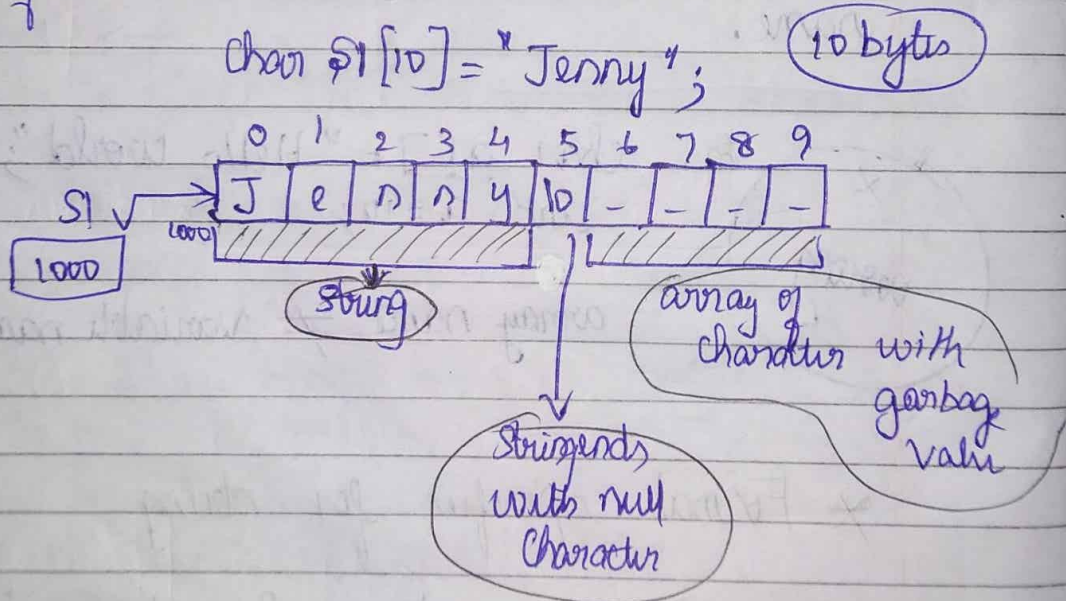 char S1[10] = "Jenny";
10 bytes
0 1 2 3 4 5 6 7 8 9
S1
J e n n y \0 _ _ _ _
1000
1000
String
array of
character with
garbag
valu
String ends
with null
character